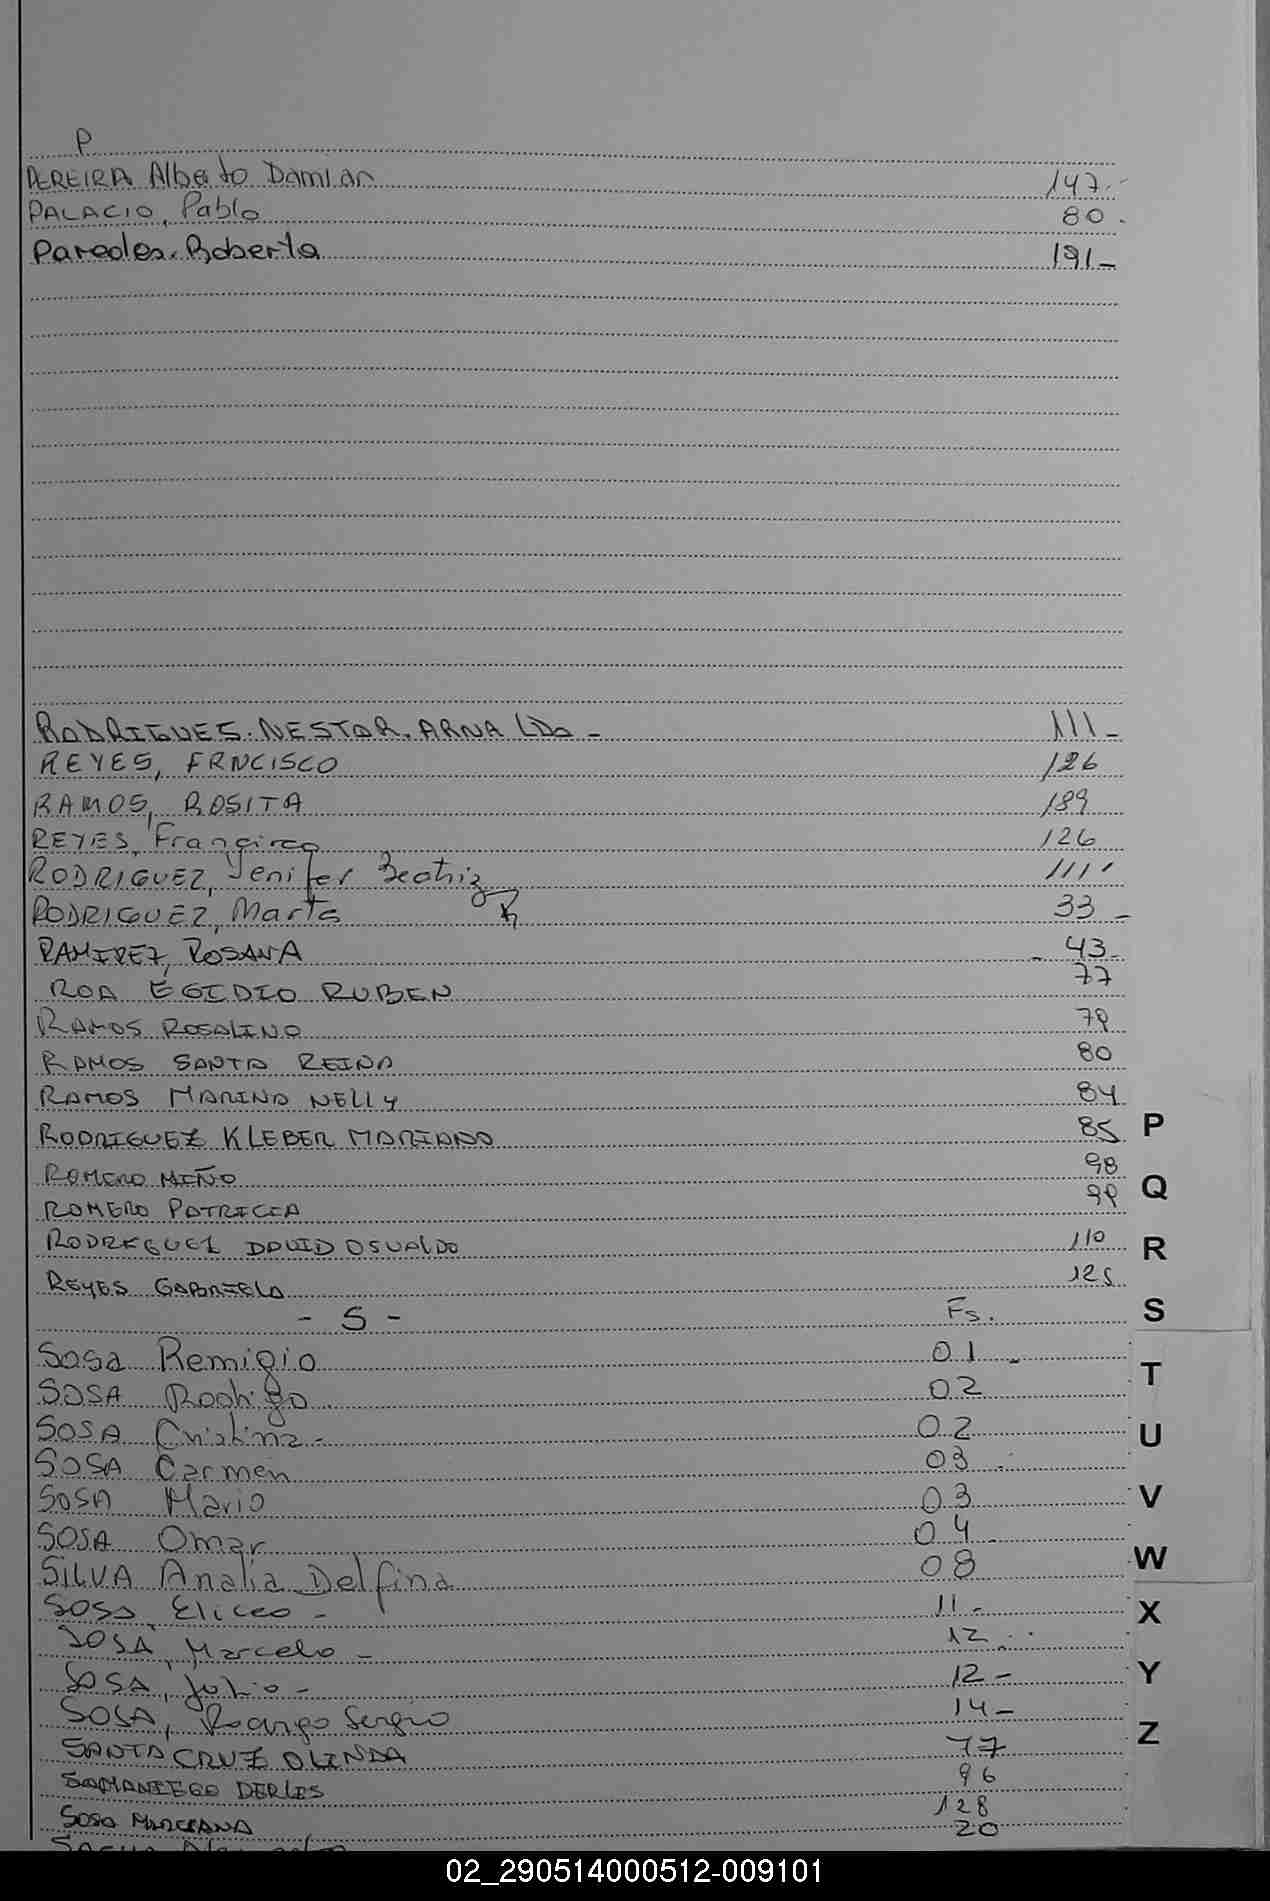 P
PEREIRA Alberto Damian 147.-
PALACIO, Pablo 80.
Paredes. Roberto 191-
RODRIGUES. NESTOR. ARNALDO - 111-
REYES, FRNCISCO 126
RAMOS, ROSITA 189
REYES, Francisco 126
RODRIGUEZ, Yenifer Beatriz 111
RODRIGUEZ, Marta 33 -
RAMIREZ, ROSANA - 43-
ROA EGIDIO RUBEN 77
RAMOS ROSALINO 79
RAMOS SANTA REINA 80
RAMOS MARINA NELLY 84
RODRIGUEZ KLEBER MARIANO 85
ROMERO MIÑO 98
ROMERO PATRICIA 99
RODRIGUEZ DAVID OSVALDO 110
REYES GABRIELA 125
- S - Fs.
Sosa Remigio 01 -
SOSA Rodrigo 02
SOSA Cristina - 02
SOSA Carmen 03
SOSA Mario 03
SOSA Omar 04
SILVA Analia Delfina 08
SOSA Eliceo - 11-
SOSA, Marcelo - 12
SOSA, Julio - 12-
SOSA, Sergio 14-
SANTA CRUZ OLINDA 77
SAMANIEGO DERLIS 96
SOSA MARCIANA 128
20
P
Q
R
S
T
U
V
W
X
Y
Z
02_290514000512-009101